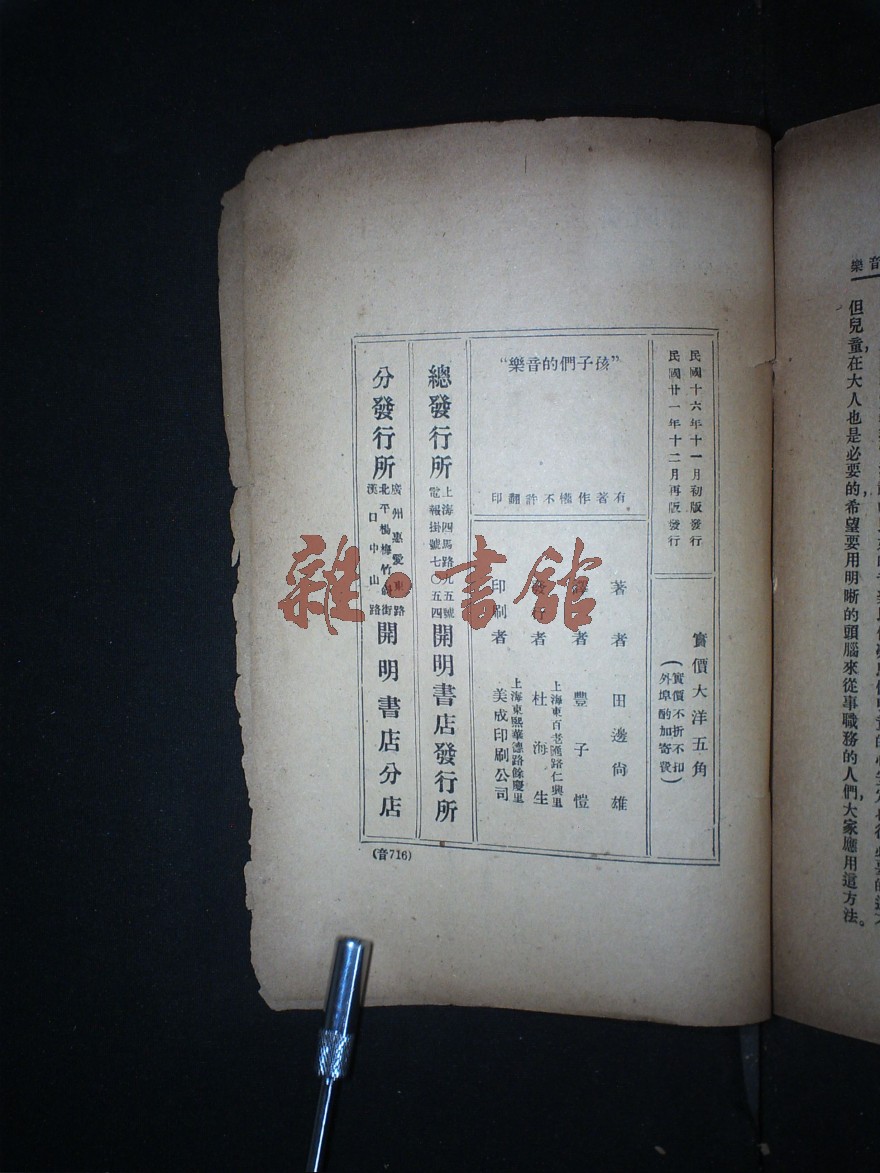 音樂
但兒童，在大人也是必要的，希望要用明晰的頭腦來從事職務的人們，大家應用這方法。
民國十六年十一月初版發行
民國廿一年十二月再版發行
實價大洋五角
（實價不折不扣
外埠酌加寄費）
“孩子們的音樂”
有著作權不許翻印
著者 田邊尙雄
譯者 豐子愷
發行者 杜海生
上海東百老匯路仁興里
印刷者 美成印刷公司
上海東熙華德路餘慶里
總發行所
上海四馬路九五號
電報掛號七〇五四
開明書店發行所
分發行所
廣州惠愛東路
北平楊梅竹斜街
漢口中山路
開明書店分店
(音716)
雜·書館